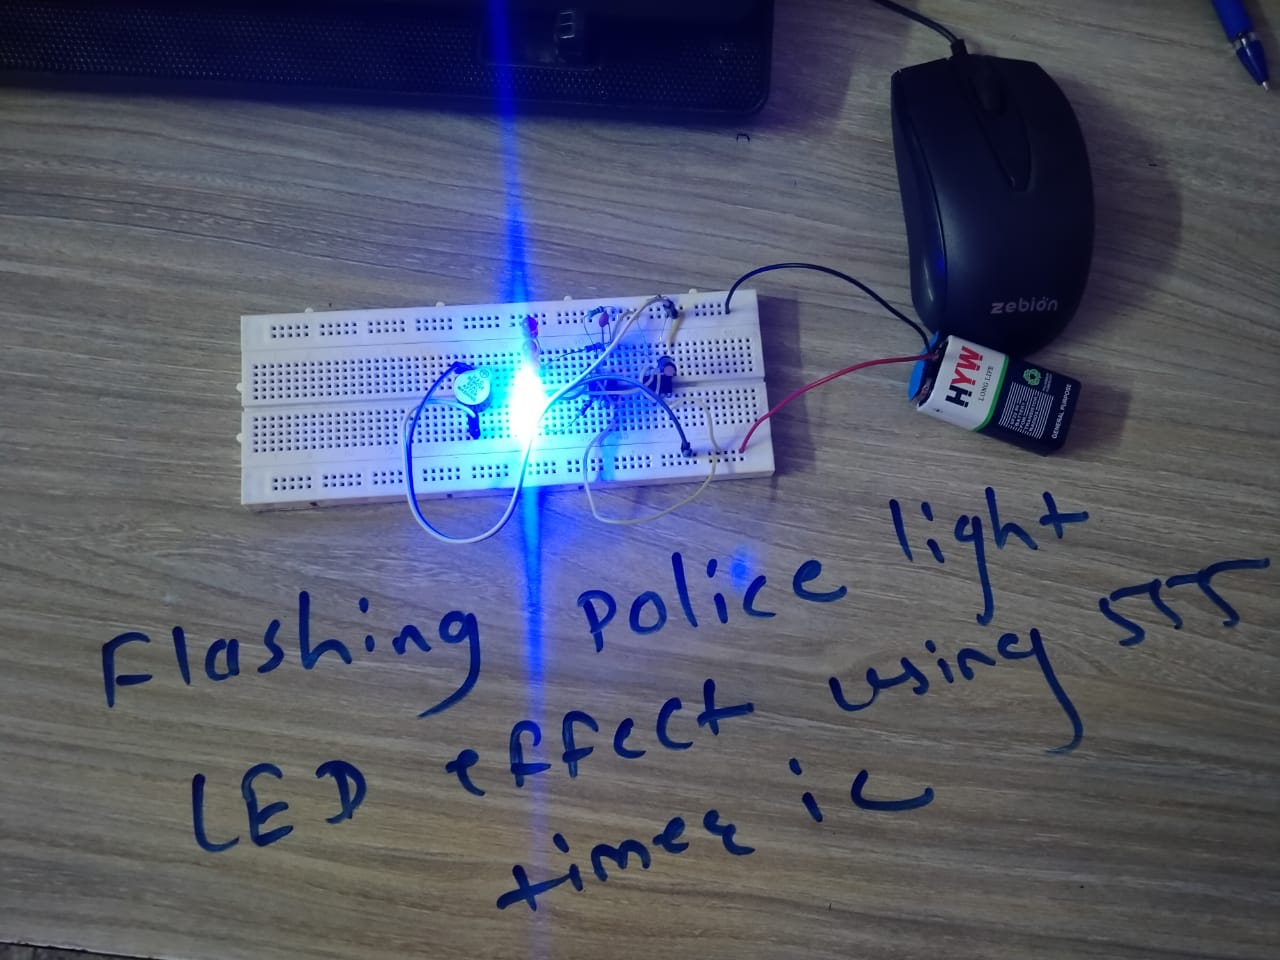 zebion
HYW
LONG LIFE
GENERAL PURPOSE
Flashing police light
LED effect using 555
timer ic